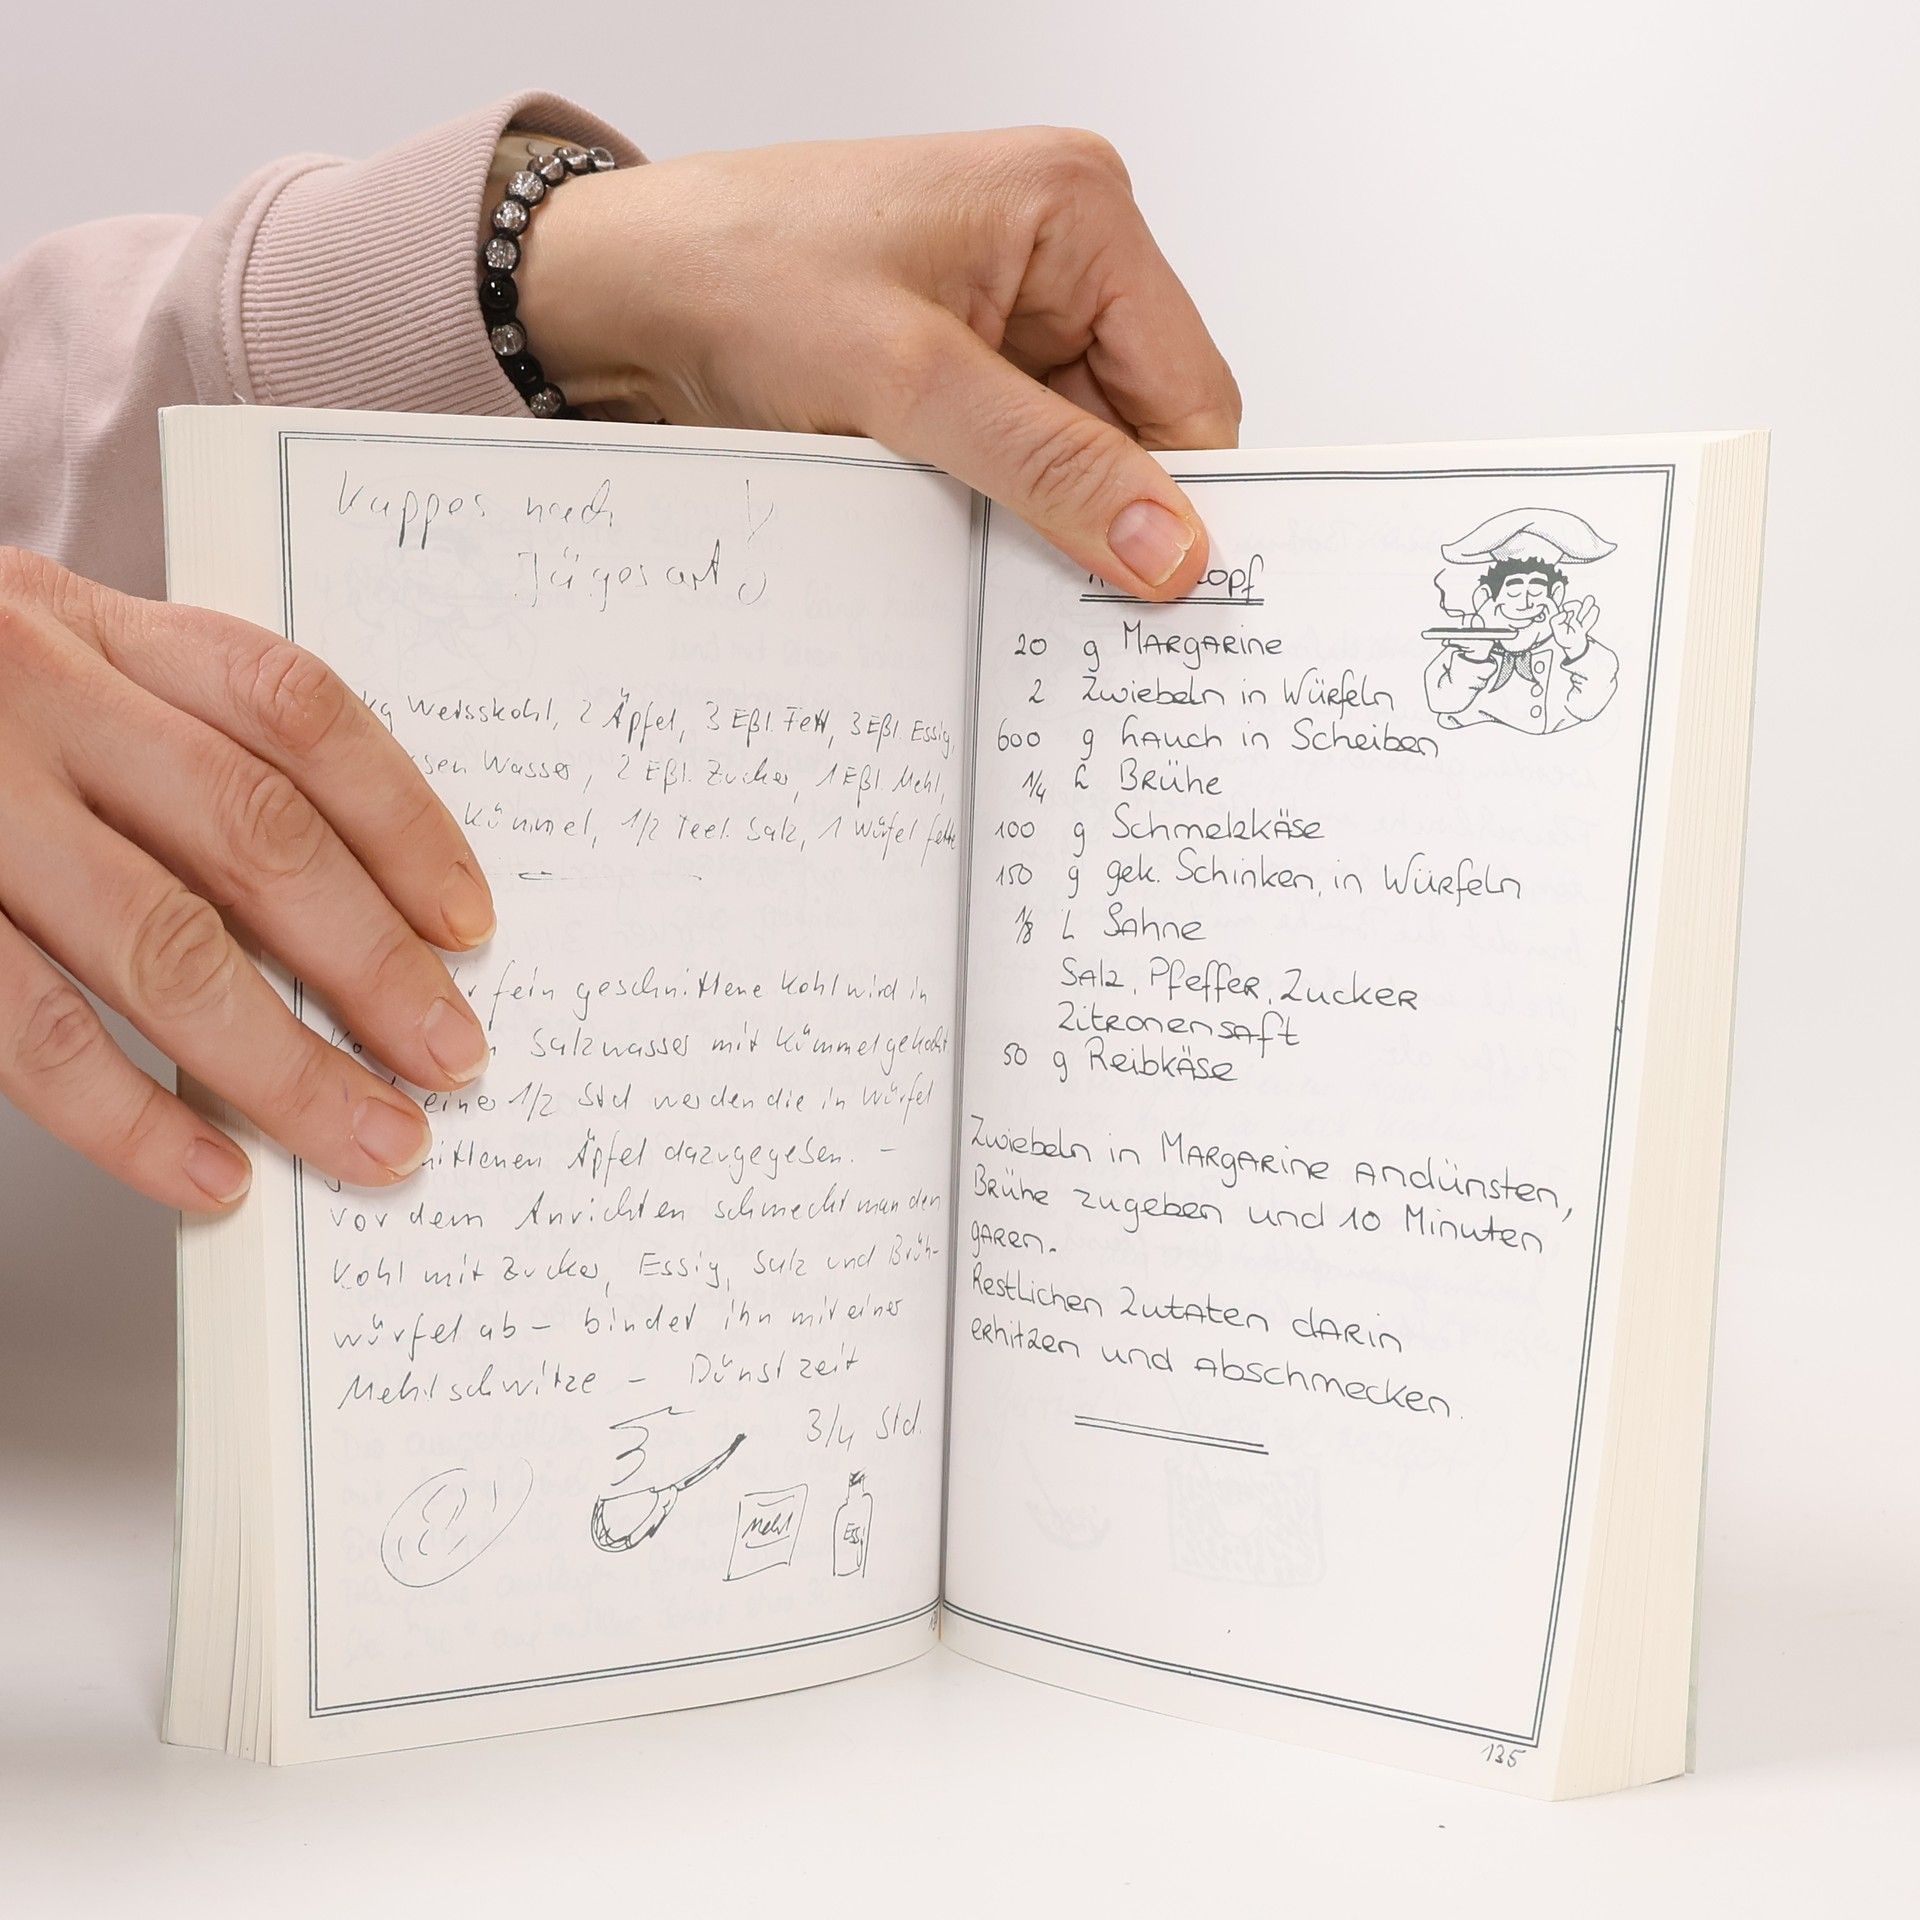 Kappes nach
Jägesart
kg Weisskohl, 2 Äpfel, 3 Eßl. Fett, 3 Eßl. Essig,
Wasser, 2 Eßl. Zucker, 1 Eßl. Mehl,
Kümmel, 1/2 Teel. Salz, 1 Würfel fette
fein geschnittene Kohl wird in
Salzwasser mit Kümmel gekocht
einer 1/2 Std werden die in Würfel
Äpfel dazugegeben. –
vor dem Anrichten schmeckt man den
Kohl mit Zucker, Essig, Salz und Brüh-
würfel ab – bindet ihn mit einer
Mehlschwitze – Dünstzeit
3/4 Std.
Mehl
Essig
20 g Margarine
2 Zwiebeln in Würfeln
600 g Lauch in Scheiben
1/4 L Brühe
100 g Schmelzkäse
150 g gek. Schinken, in Würfeln
1/8 L Sahne
Salz, Pfeffer, Zucker
Zitronensaft
50 g Reibkäse
Zwiebeln in Margarine andünsten,
Brühe zugeben und 10 Minuten
garen.
Restlichen Zutaten darin
erhitzen und abschmecken.
135